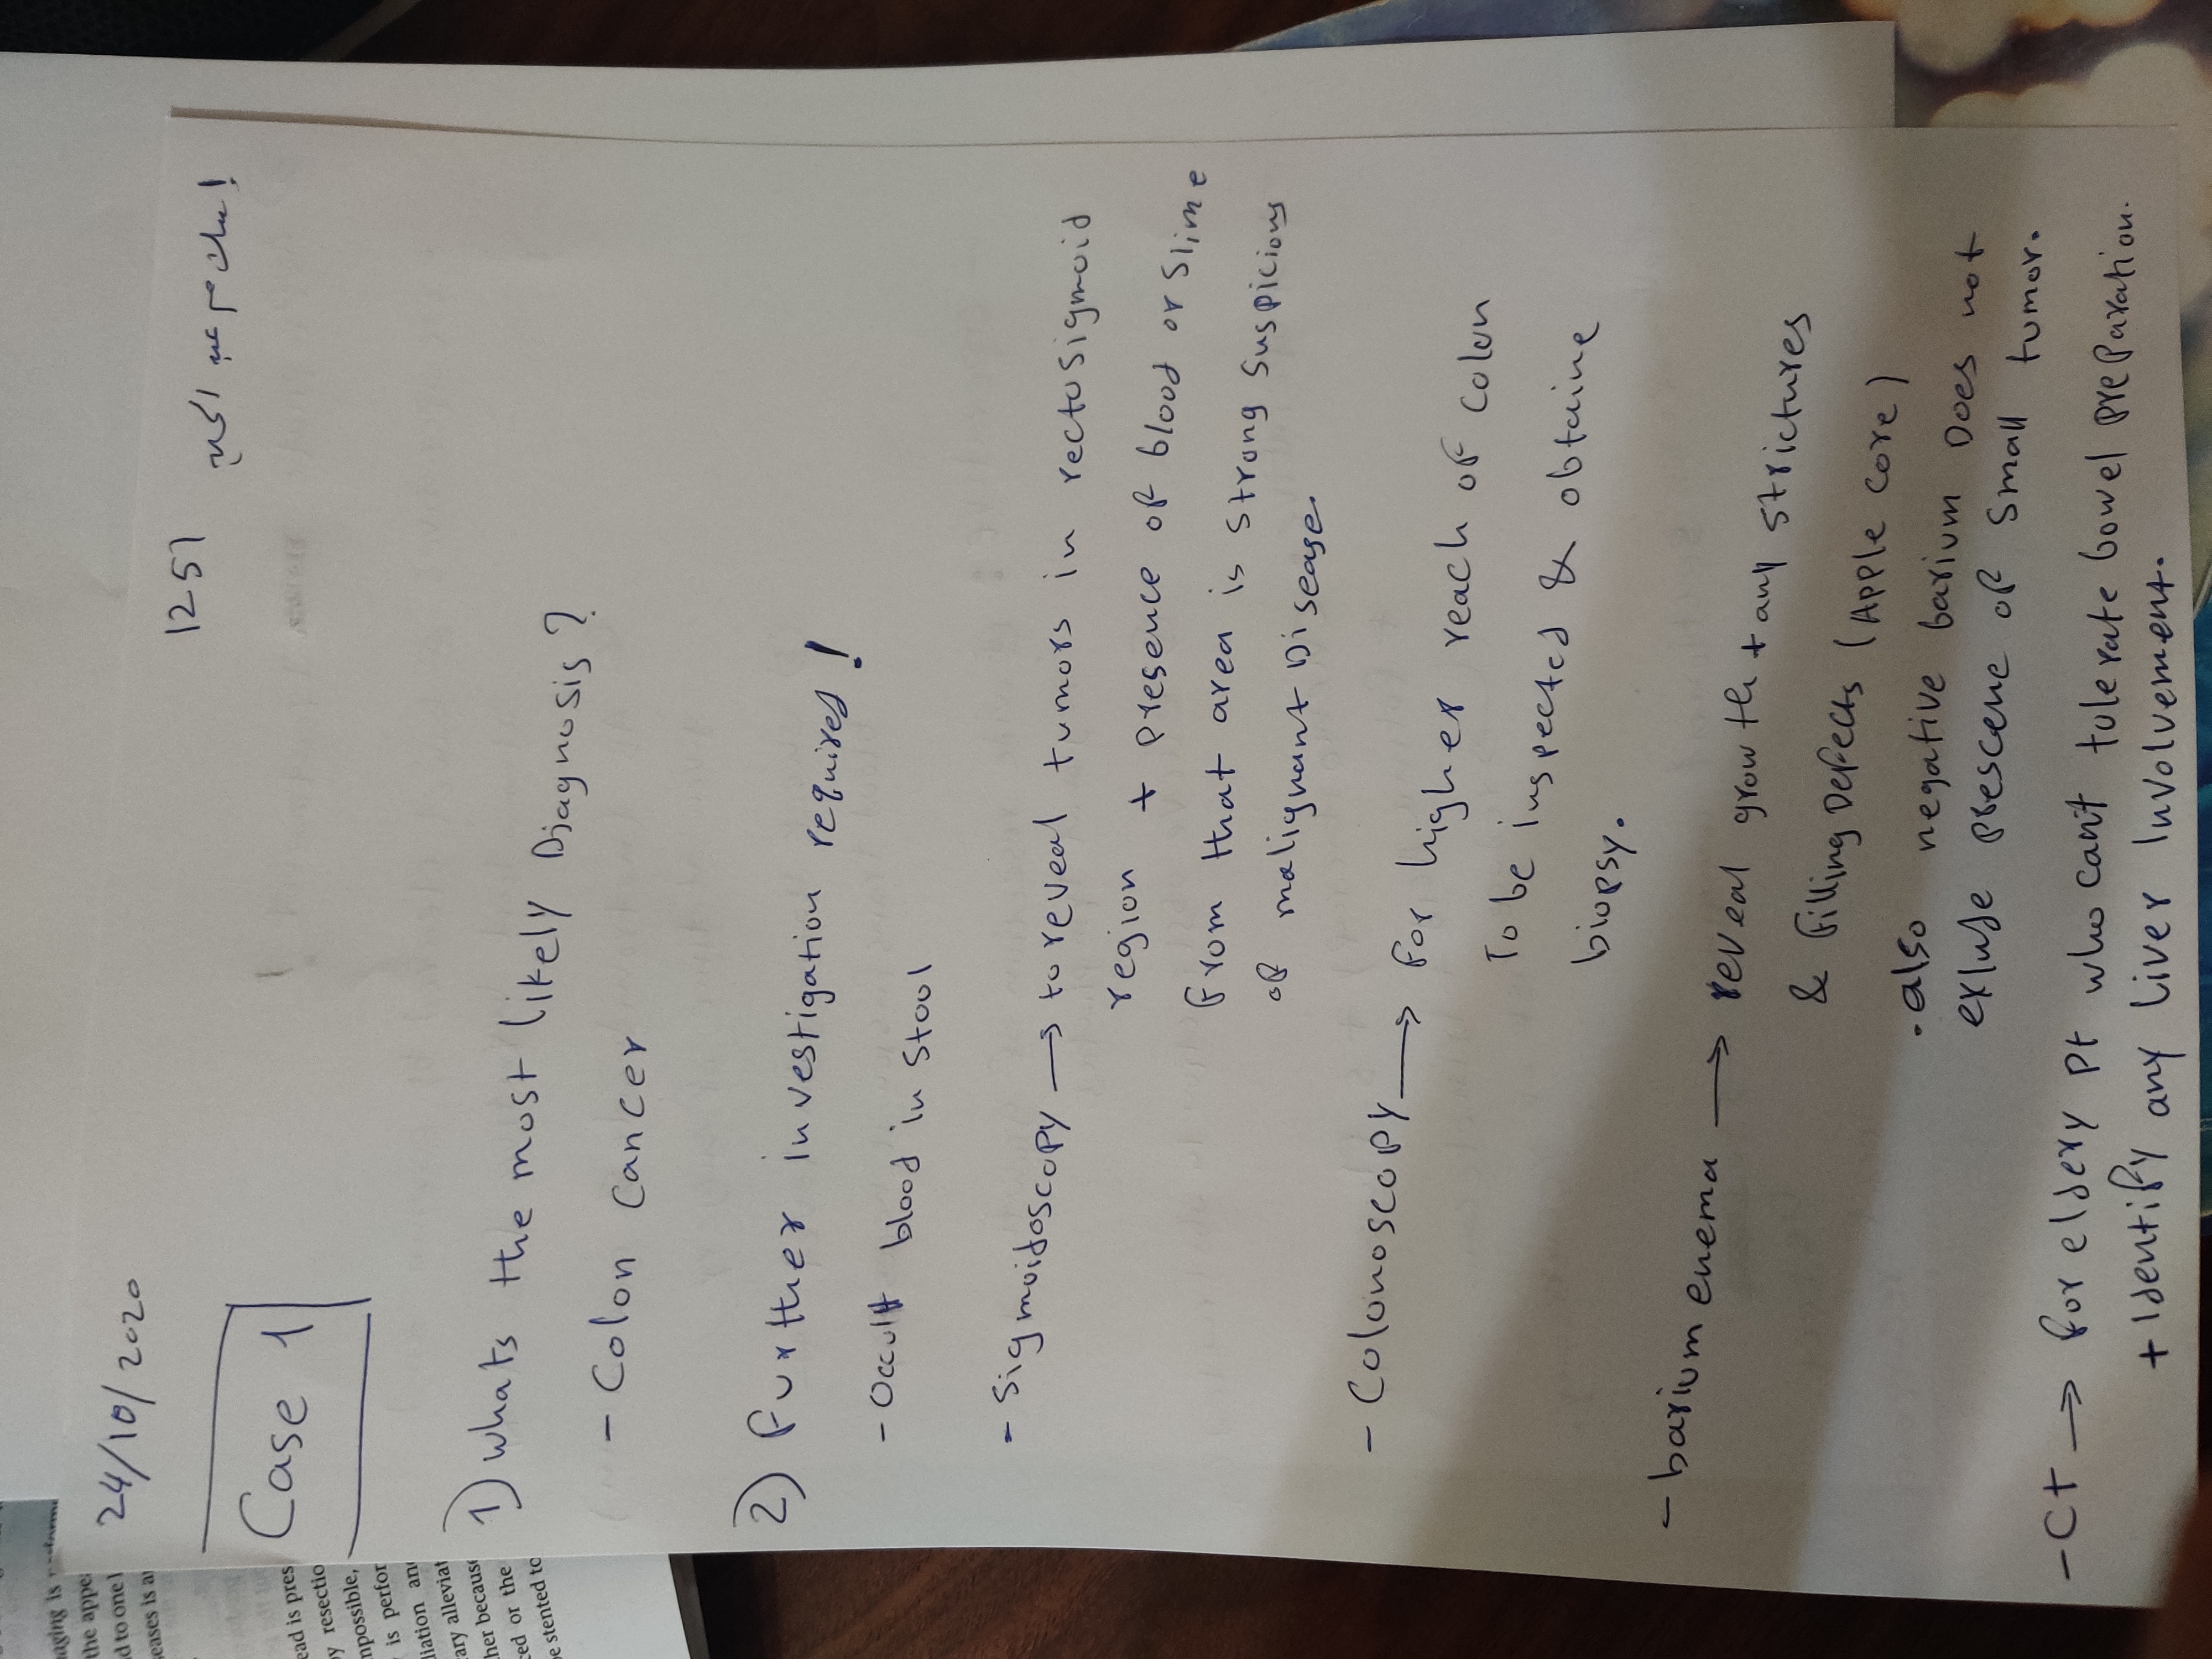 24/10/2020
1251
Case 1
1) whats the most likely Diagnosis?
- Colon Cancer
2) Further investigation required!
- Occult blood in stool
- Sigmoidoscopy → to reveal tumors in rectosigmoid
region + presence of blood or slime
from that area is strong suspicious
of malignant Disease.
- Colonoscopy → for higher reach of colon
To be inspected & obtaine
biopsy.
- barium enema → reveal growth + any strictures
& filling Defects (Apple core)
• also negative barium Does not
exlude prescene of small tumor.
- CT → for eldery Pt who can't tolerate bowel preparation.
+ Identify any liver Involvement.
naging is
the appe
d to one l
eases is a
ead is pres
y resectio
mpossible,
is perfor
liation an
ary alleviat
her becaus
ced or the
be stented to